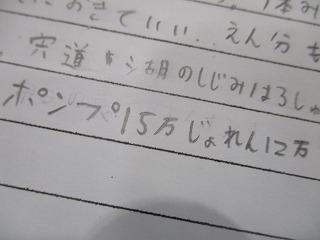 におきていい..えん分も
宍道湖のしじみはろしゅ
ポンプ15万じょれん12万